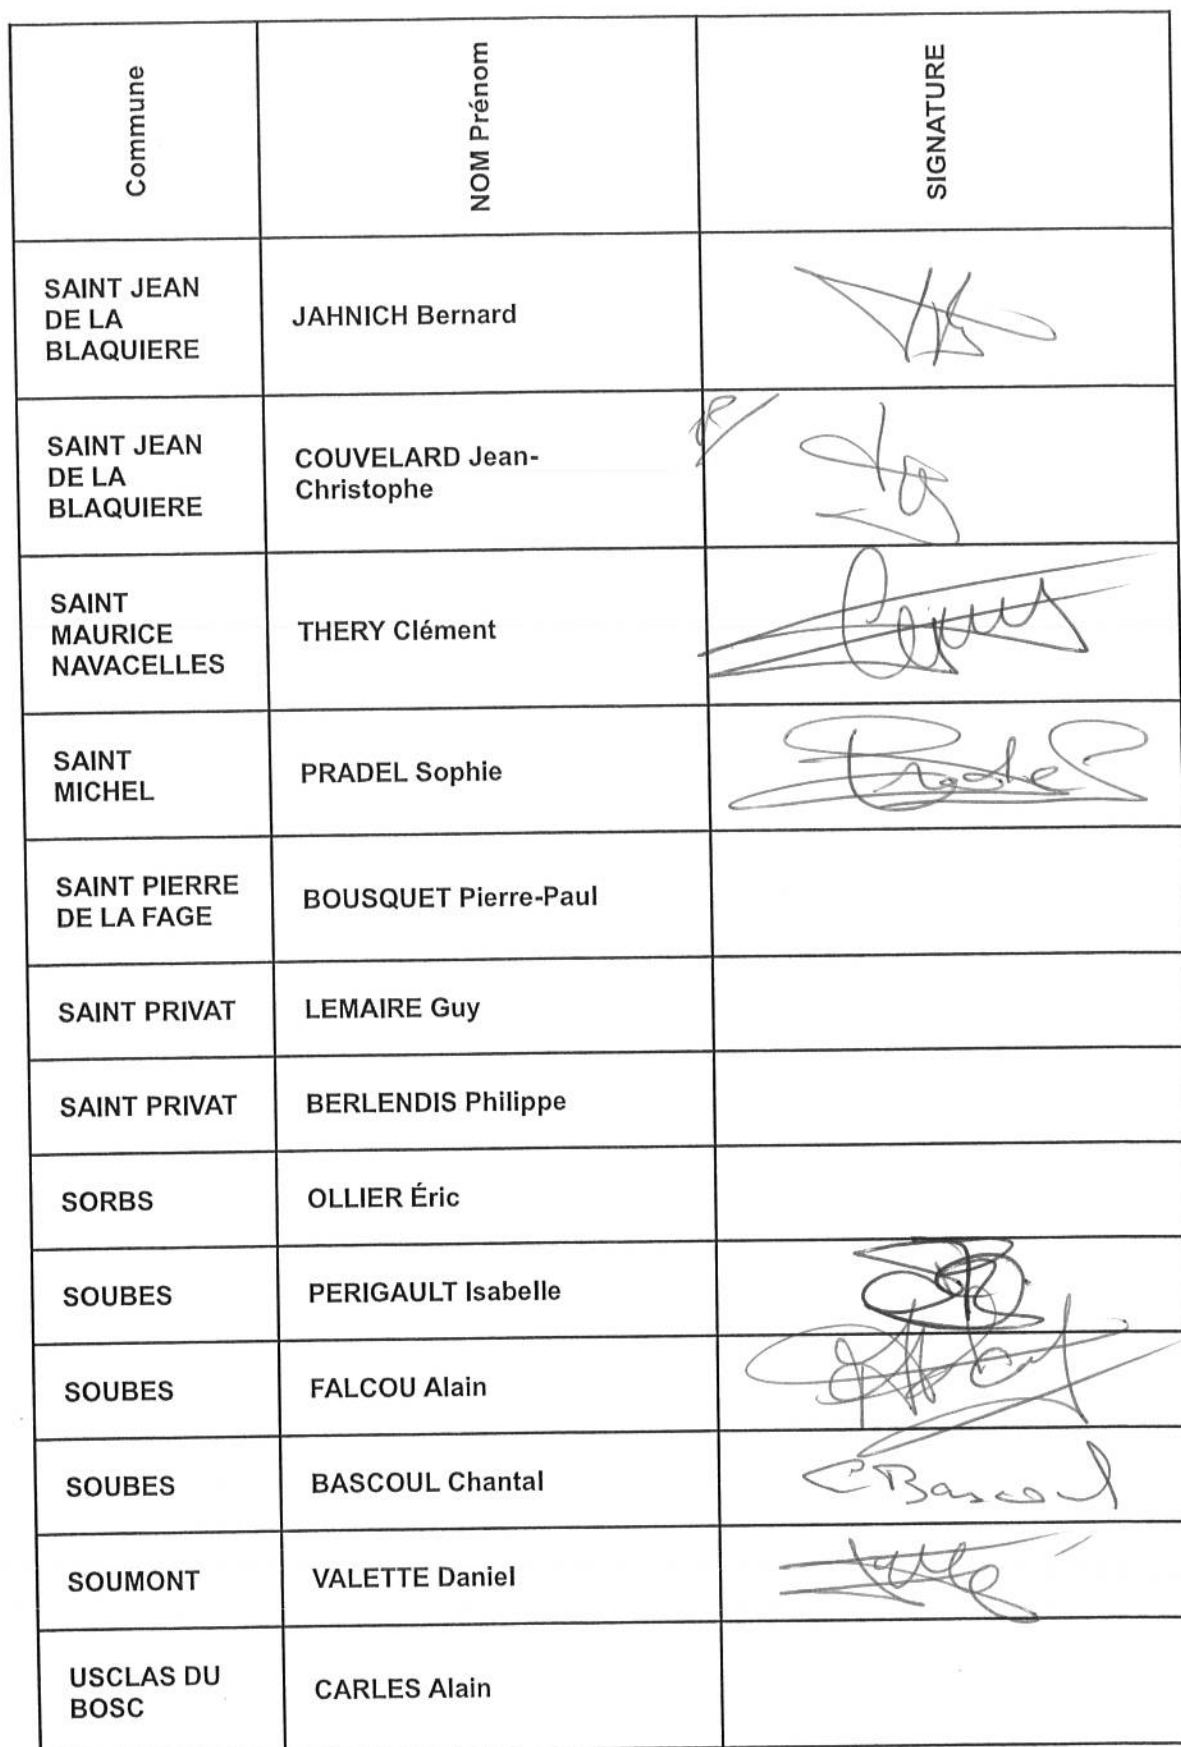 Commune
NOM Prénom
SIGNATURE
SAINT JEAN
DE LA
BLAQUIERE
JAHNICH Bernard
SAINT JEAN
DE LA
BLAQUIERE
COUVELARD Jean-
Christophe
SAINT
MAURICE
NAVACELLES
THERY Clément
SAINT
MICHEL
PRADEL Sophie
Pradel
SAINT PIERRE
DE LA FAGE
BOUSQUET Pierre-Paul
SAINT PRIVAT
LEMAIRE Guy
SAINT PRIVAT
BERLENDIS Philippe
SORBS
OLLIER Éric
SOUBES
PERIGAULT Isabelle
SOUBES
FALCOU Alain
SOUBES
BASCOUL Chantal
C Bascoul
SOUMONT
VALETTE Daniel
USCLAS DU
BOSC
CARLES Alain